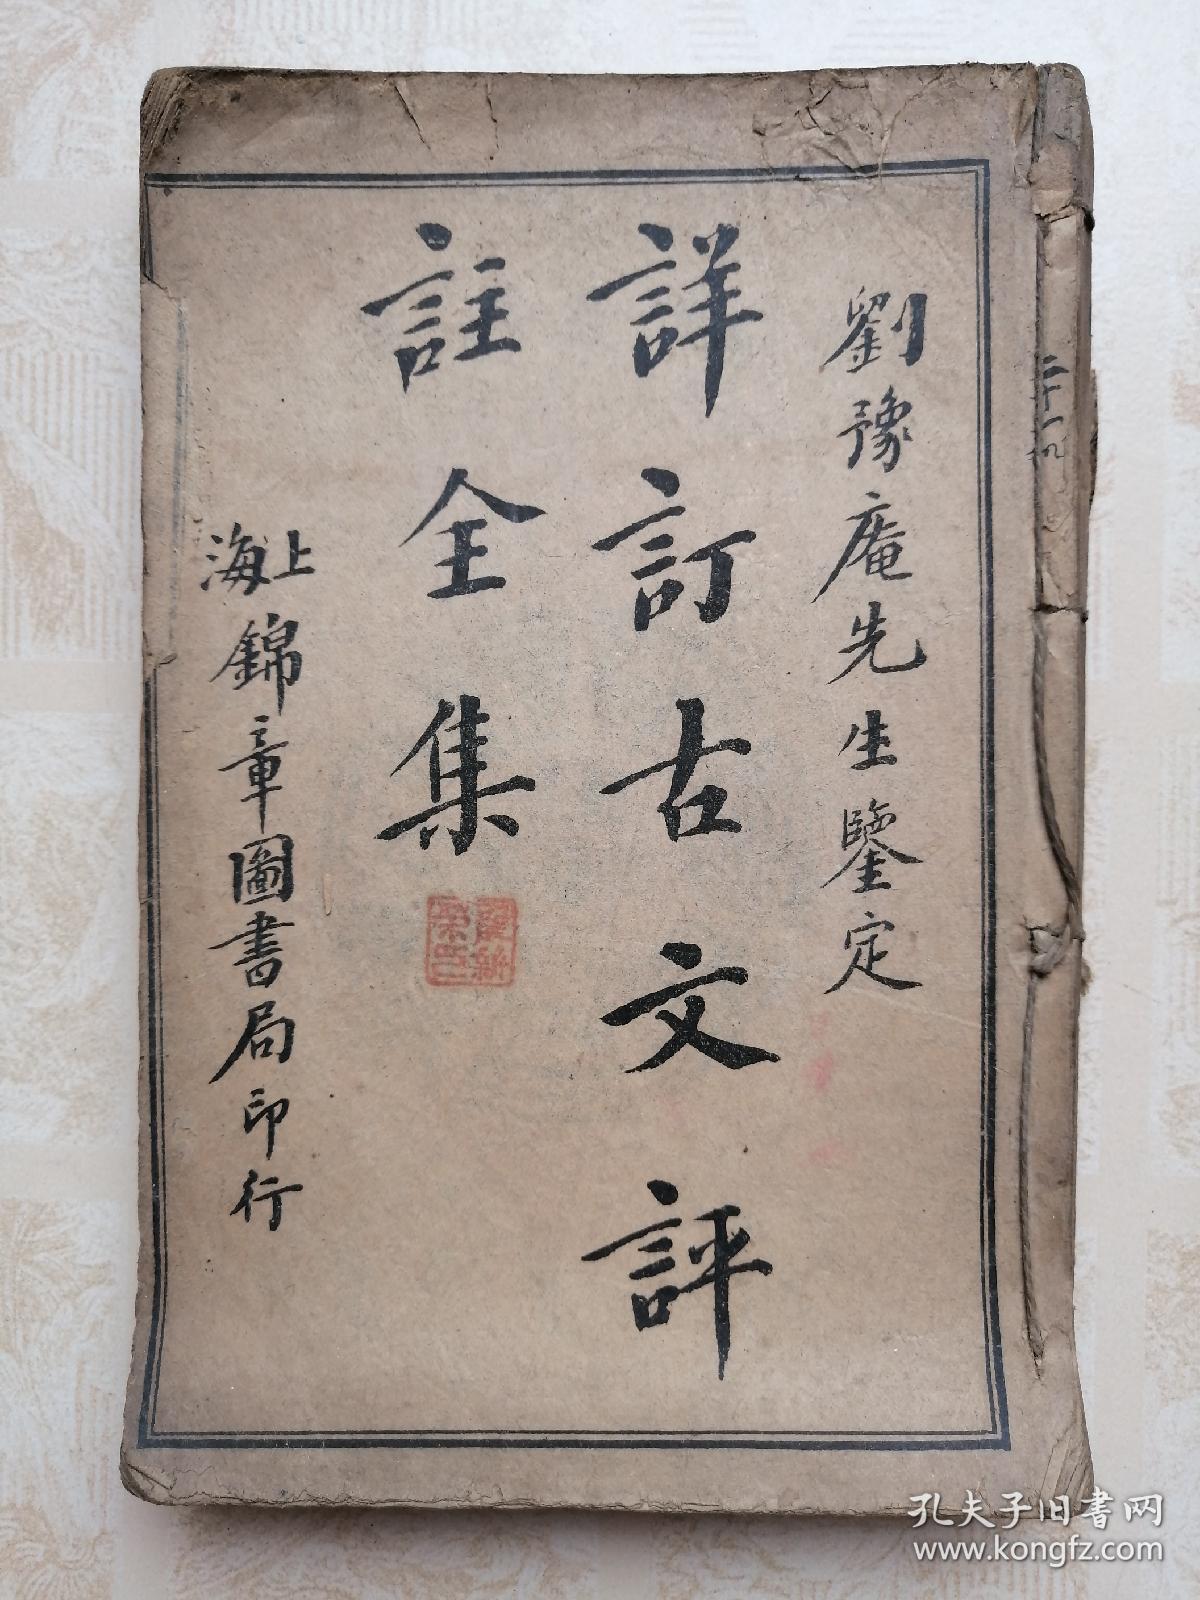 劉豫庵先生鑒定
詳訂古文評
註全集
上海錦章圖書局印行
孔夫子旧书网
www.kongfz.com